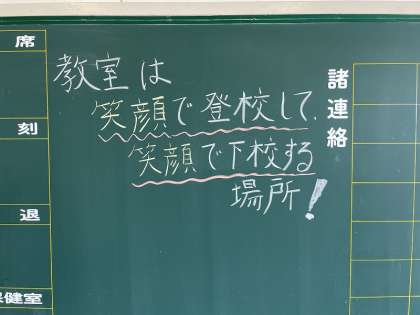 教室は
笑顔で登校して、
笑顔で下校する
場所!
諸連絡
席
刻
退
保健室